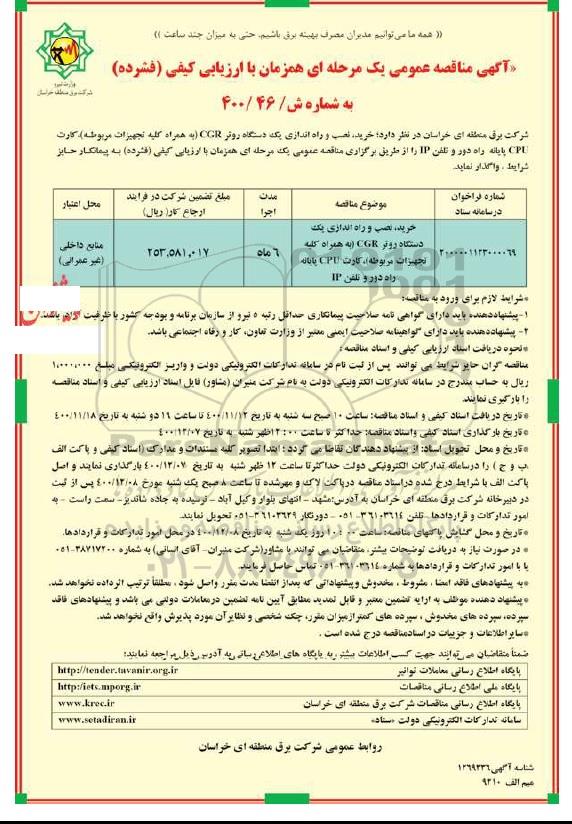 (( همه ما می‌توانیم مدیران مصرف بهینه برق باشیم، حتی به میزان چند ساعت ))
وزارت نیرو
شرکت برق منطقه ای خراسان
«آگهی مناقصه عمومی یک مرحله ای همزمان با ارزیابی کیفی (فشرده)
به شماره ش/ ۴۶ /۴۰۰
شرکت برق منطقه ای خراسان در نظر دارد؛ خرید، نصب و راه اندازی یک دستگاه روتر CGR (به همراه کلیه تجهیزات مربوطه)،کارت
CPU پایانه راه دور و تلفن IP را از طریق برگزاری مناقصه عمومی یک مرحله ای همزمان با ارزیابی کیفی (فشرده) به پیمانکار حایز
شرایط ، واگذار نماید.
شماره فراخوان درسامانه ستاد
موضوع مناقصه
مدت اجرا
مبلغ تضمین شرکت در فرایند ارجاع کار( ریال)
محل اعتبار
۲۰۰۰۰۰۱۱۲۳۰۰۰۰۶۹
خرید، نصب و راه اندازی یک
دستگاه روتر CGR (به همراه کلیه
تجهیزات مربوطه)،کارت CPU پایانه
راه دور و تلفن IP
۶ ماه
۲۵۳,۵۸۱,۰۱۷
منابع داخلی
(غیر عمرانی)
*شرایط لازم برای ورود به مناقصه:
۱-پیشنهاددهنده باید دارای گواهی نامه صلاحیت پیمانکاری حداقل رتبه ۵ نیرو از سازمان برنامه و بودجه کشور با ظرفیت آزاد باشد.
۲- پیشنهاددهنده باید دارای گواهینامه صلاحیت ایمنی معتبر از وزارت تعاون، کار و رفاه اجتماعی باشد.
*نحوه دریافت اسناد ارزیابی کیفی و اسناد مناقصه :
مناقصه گران حایز شرایط می توانند پس از ثبت نام در سامانه تدارکات الکترونیکی دولت و واریز الکترونیکی مبلغ ۱,۰۰۰,۰۰۰
ریال به حساب مندرج در سامانه تدارکات الکترونیکی دولت به نام شرکت منیران (مشاور) فایل اسناد ارزیابی کیفی و اسناد مناقصه
را بارگیری نمایند.
*تاریخ دریافت اسناد کیفی و اسناد مناقصه: ساعت ۱۰ صبح سه شنبه به تاریخ ۴۰۰/۱۱/۱۲ تا ساعت ۱۹ دو شنبه به تاریخ ۴۰۰/۱۱/۱۸
*تاریخ بارگذاری اسناد کیفی واسناد مناقصه: حداکثر تا ساعت ۰۰ : ۱۲ظهر شنبه به تاریخ ۴۰۰/۱۲/۰۷
*تاریخ و محل تحویل اسناد: از پیشنهاد دهندگان تقاضا می گردد : ابتدا تصویر کلیه مستندات و مدارک (اسناد کیفی و پاکت الف
،ب و ج ) را درسامانه تدارکات الکترونیکی دولت حداکثرتا ساعت ۱۲ ظهر شنبه به تاریخ ۴۰۰/۱۲/۰۷ بارگذاری نمایند و اصل
پاکت الف با شرایط درج شده دراسناد مناقصه درپاکت لاک و مهرشده تا ساعت ۸ صبح یک شنبه مورخ ۴۰۰/۱۲/۰۸ پس از ثبت
در دبیرخانه شرکت برق منطقه ای خراسان به آدرس:مشهد - انتهای بلوار وکیل آباد - نرسیده به جاده شاندیز- سمت راست - به
امور تدارکات و قراردادها- تلفن ۳۶۱۰۳۶۱۴-۰۵۱ - دورنگار ۳۶۱۰۳۶۲۹-۰۵۱ تحویل نمایند.
*تاریخ و محل گشایش پاکتهای مناقصه: ساعت ۰۰ : ۱۰ روز یک شنبه به تاریخ ۴۰۰/۱۲/۰۸ در محل امور تدارکات و قراردادها.
* در صورت نیاز به دریافت توضیحات بیشتر، متقاضیان می توانند با مشاور(شرکت منیران- آقای انسانی) به شماره ۳۸۷۱۷۲۰۰-۰۵۱
یا با امور تدارکات و قراردادهابه شماره ۳۶۱۰۳۶۱۴-۰۵۱ تماس حاصل فرمایند.
*به پیشنهادهای فاقد امضا ، مشروط ، مخدوش وپیشنهاداتی که بعداز انقضا مدت مقرر واصل شود ، مطلقاً ترتیب اثرداده نخواهدشد.
*پیشنهاد دهنده موظف به ارایه تضمین معتبر و قابل تمدید مطابق آیین نامه تضمین درمعاملات دولتی می باشد و پیشنهادهای فاقد
سپرده، سپرده های مخدوش ، سپرده های کمتر ازمیزان مقرر، چک شخصی و نظایرآن مورد پذیرش واقع نخواهد شد.
*سایراطلاعات و جزییات دراسنادمناقصه درج شده است .
ضمناً متقاضیان می توانند جهت کسب اطلاعات بیشتر به پایگاه های اطلاع رسانی به آدرس ذیل مراجعه نمایند:
پایگاه اطلاع رسانی معاملات توانیر http://tender.tavanir.org.ir
پایگاه ملی اطلاع رسانی مناقصات http:/iets.mporg.ir
پایگاه اطلاع رسانی مناقصات شرکت برق منطقه ای خراسان www.krec.ir
سامانه تدارکات الکترونیکی دولت «ستاد» www.setadiran.ir
روابط عمومی شرکت برق منطقه ای خراسان
شناسه آگهی ۱۲۶۹۳۳۶
میم الف ۹۳۱۰